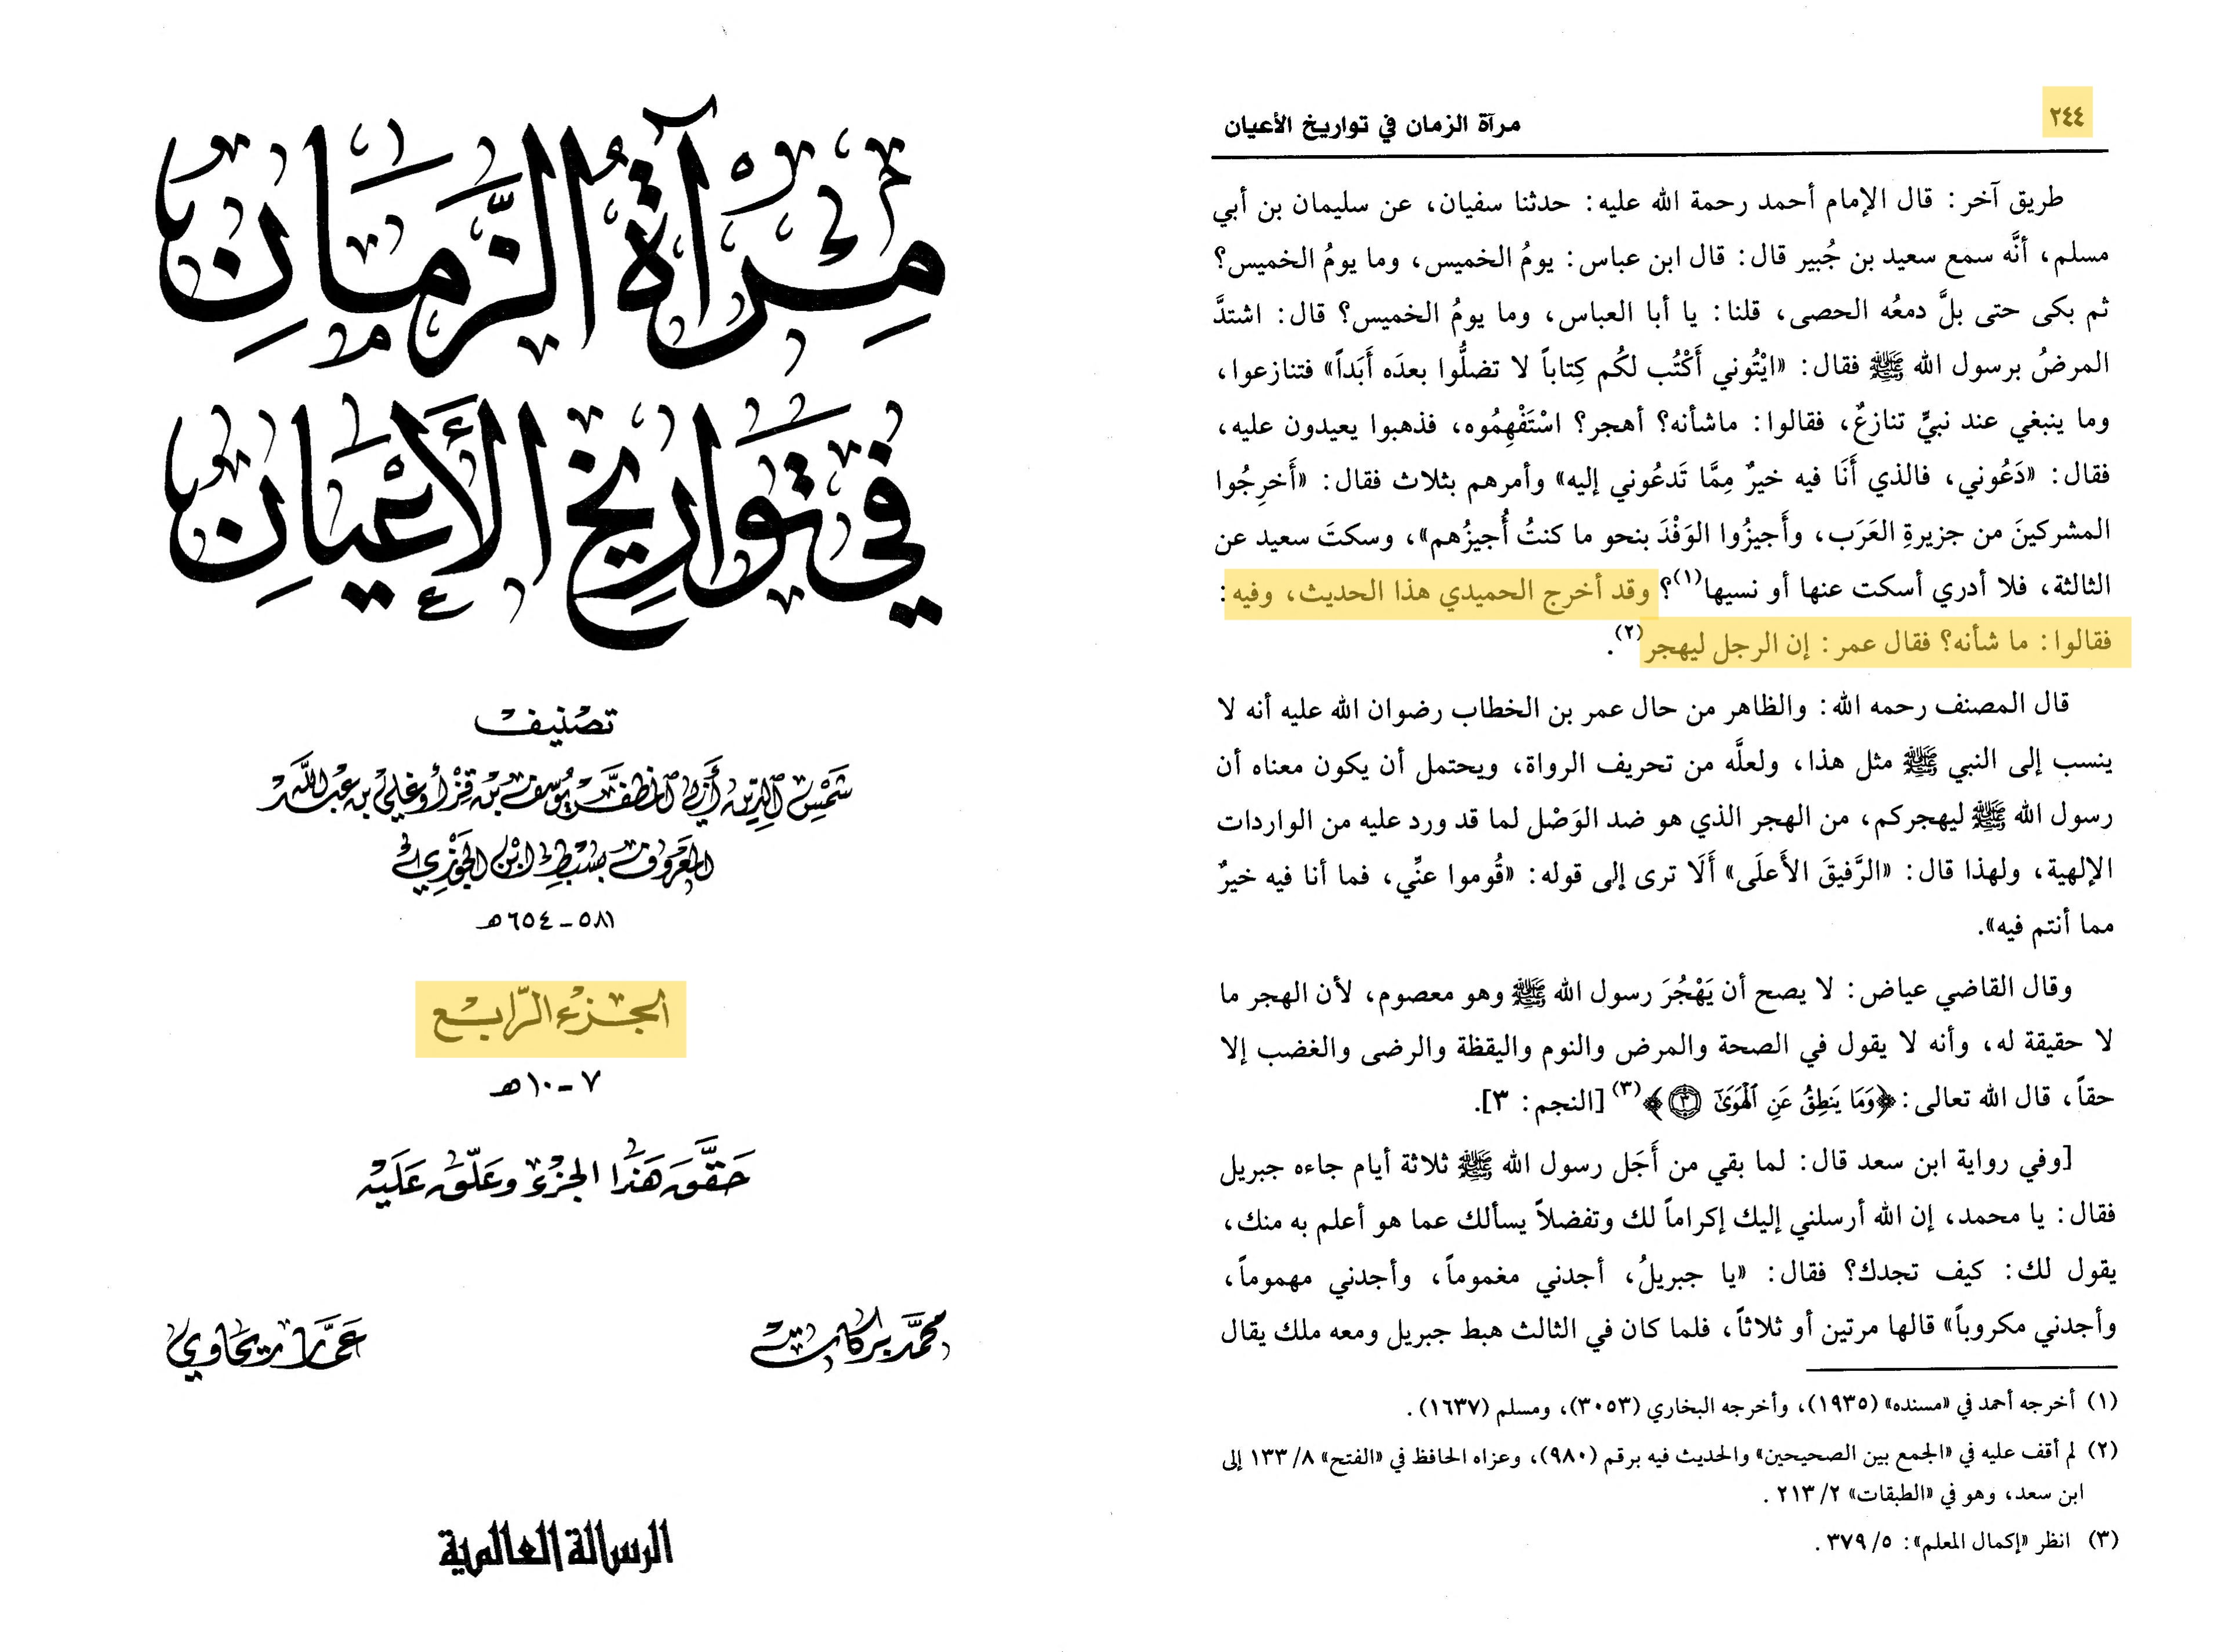 ٢٤٤
مرآة الزمان في تواريخ الأعيان
طريق آخر: قال الإمام أحمد رحمة الله عليه: حدثنا سفيان، عن سليمان بن أبي
مسلم، أنَّه سمع سعيد بن جُبير قال: قال ابن عباس: يومُ الخميس، وما يومُ الخميس؟
ثم بكى حتى بلَّ دمعُه الحصى، قلنا: يا أبا العباس، وما يومُ الخميس؟ قال: اشتدَّ
المرضُ برسول الله ﷺ فقال: «ايْتُوني أَكْتُب لكُم كِتاباً لا تضلُّوا بعدَه أَبَداً» فتنازعوا،
وما ينبغي عند نبيٍّ تنازعٌ، فقالوا: ماشأنه؟ أهجر؟ اسْتَفْهِمُوه، فذهبوا يعيدون عليه،
فقال: «دَعُوني، فالذي أَنَا فيه خيرٌ مِمَّا تَدعُوني إليه» وأمرهم بثلاث فقال: «أَخرِجُوا
المشركينَ من جزيرةِ العَرَب، وأَجيزُوا الوَفْدَ بنحو ما كنتُ أُجيزُهم»، وسكتَ سعيد عن
الثالثة، فلا أدري أسكت عنها أو نسيها(١)؟ وقد أخرج الحميدي هذا الحديث، وفيه:
فقالوا: ما شأنه؟ فقال عمر: إن الرجل ليهجر(٢).
قال المصنف رحمه الله: والظاهر من حال عمر بن الخطاب رضوان الله عليه أنه لا
ينسب إلى النبي ﷺ مثل هذا، ولعلَّه من تحريف الرواة، ويحتمل أن يكون معناه أن
رسول الله ﷺ ليهجركم، من الهجر الذي هو ضد الوَصْل لما قد ورد عليه من الواردات
الإلهية، ولهذا قال: «الرَّفيقَ الأَعلَى» أَلَا ترى إلى قوله: «قُوموا عنِّي، فما أنا فيه خيرٌ
مما أنتم فيه».
وقال القاضي عياض: لا يصح أن يَهْجُرَ رسول الله ﷺ وهو معصوم، لأن الهجر ما
لا حقيقة له، وأنه لا يقول في الصحة والمرض والنوم واليقظة والرضى والغضب إلا
حقاً، قال الله تعالى: ﴿وَمَا يَنطِقُ عَنِ ٱلْهَوَىٰٓ ٣﴾(٣) [النجم: ٣].
[وفي رواية ابن سعد قال: لما بقي من أَجَل رسول الله ﷺ ثلاثة أيام جاءه جبريل
فقال: يا محمد، إن الله أرسلني إليك إكراماً لك وتفضلاً يسألك عما هو أعلم به منك،
يقول لك: كيف تجدك؟ فقال: «يا جبريلُ، أجدني مغموماً، وأجدني مهموماً،
وأجدني مكروباً» قالها مرتين أو ثلاثاً، فلما كان في الثالث هبط جبريل ومعه ملك يقال
(١) أخرجه أحمد في «مسنده» (١٩٣٥)، وأخرجه البخاري (٣٠٥٣)، ومسلم (١٦٣٧).
(٢) لم أقف عليه في «الجمع بين الصحيحين» والحديث فيه برقم (٩٨٠)، وعزاه الحافظ في «الفتح» ٨/ ١٣٣ إلى
ابن سعد، وهو في «الطبقات» ٢/ ٢١٣.
(٣) انظر «إكمال المعلم»: ٥/ ٣٧٩.
مِرْآةُ الزَّمَانِ
في تَوَارِيخِ الأَعْيَانِ
تصنيف
شَمْسِ الدِّينِ أَبِي المُظَفَّرِ يُوسُفَ بْنِ قِزْأُوغْلِي بْنِ عَبْدِ اللَّهِ
المَعْرُوفِ بِسِبْطِ ابْنِ الجَوْزِيِّ
٥٨١ - ٦٥٤ هـ
الجزء الرّابع
٧ - ١٠ هـ
حَقَّقَ هَذَا الجُزْءَ وَعَلَّقَ عَلَيْهِ
محمَّد بركات
عَمَّار ريحاوي
الرسالة العالمية